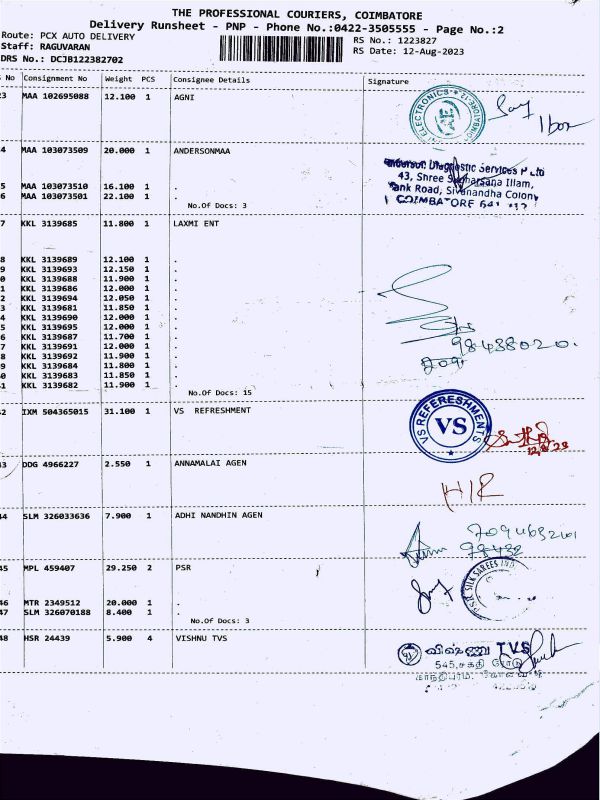 THE PROFESSIONAL COURIERS, COIMBATORE
Delivery Runsheet - PNP - Phone No.:0422-3505555 - Page No.:2
Route: PCX AUTO DELIVERY
RS No.: 1223827
Staff: RAGUVARAN
RS Date: 12-Aug-2023
DRS No.: DCJB122382702
No Consignment No Weight PCS Consignee Details Signature
3 MAA 102695088 12.100 1 AGNI
ELECTRONICS
4 MAA 103073509 20.000 1 ANDERSONMAA
Diagnostic Services P Ltd
43, Shree Illam,
Tank Road, Sivanandha Colony
COIMBATORE
5 MAA 103073510 16.100 1 .
6 MAA 103073501 22.100 1 .
No.Of Docs: 3
7 KKL 3139685 11.800 1 LAXMI ENT
8 KKL 3139689 12.100 1 .
9 KKL 3139693 12.150 1 .
0 KKL 3139688 11.900 1 .
1 KKL 3139686 12.000 1 .
2 KKL 3139694 12.050 1 .
3 KKL 3139681 11.850 1 .
4 KKL 3139690 12.000 1 .
5 KKL 3139695 12.000 1 .
6 KKL 3139687 11.700 1 .
7 KKL 3139691 12.000 1 .
8 KKL 3139692 11.900 1 .
9 KKL 3139684 11.800 1 .
0 KKL 3139683 11.850 1 .
1 KKL 3139682 11.900 1 .
No.Of Docs: 15
98438020.
42 IXM 504365015 31.100 1 VS REFRESHMENT
VS REFERESHMENTS
VS
43 DDG 4966227 2.550 1 ANNAMALAI AGEN
HIR
44 SLM 326033636 7.900 1 ADHI NANDHIN AGEN
45 MPL 459407 29.250 2 PSR
PSR SILK SAREES IND
46 MTR 2349512 20.000 1 .
47 SLM 326070188 8.400 1 .
No.Of Docs: 3
48 HSR 24439 5.900 4 VISHNU TVS
விஷ்ணு TVS
545, சக்தி ரோடு